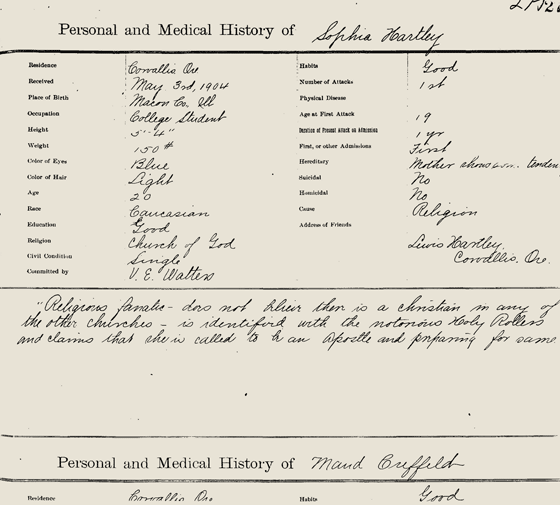 Personal and Medical History of Sophia Hartley
Residence Corvallis Ore
Received May 3rd, 1904
Place of Birth Macon Co. Ill
Occupation College Student
Height 5'-4"
Weight 150 #
Color of Eyes Blue
Color of Hair Light
Age 20
Race Caucasian
Education Good
Religion Church of God
Civil Condition Single
Committed by V. E. Watters
Habits Good
Number of Attacks 1st
Physical Disease
Age at First Attack 19
Duration of Present Attack on Admission 1 yr
First, or other Admissions First
Hereditary Mother shows tenden
Suicidal No
Homicidal No
Cause Religion
Address of Friends
Lewis Hartley
Corvallis. Ore.
"Religious fanatic - does not believe there is a christian in any of
the other churches - is identified with the notorious Holy Rollers
and claims that she is called to be an Apostle and preparing for same
Personal and Medical History of Maud Creffeld
Residence Corvallis Ore
Habits Good